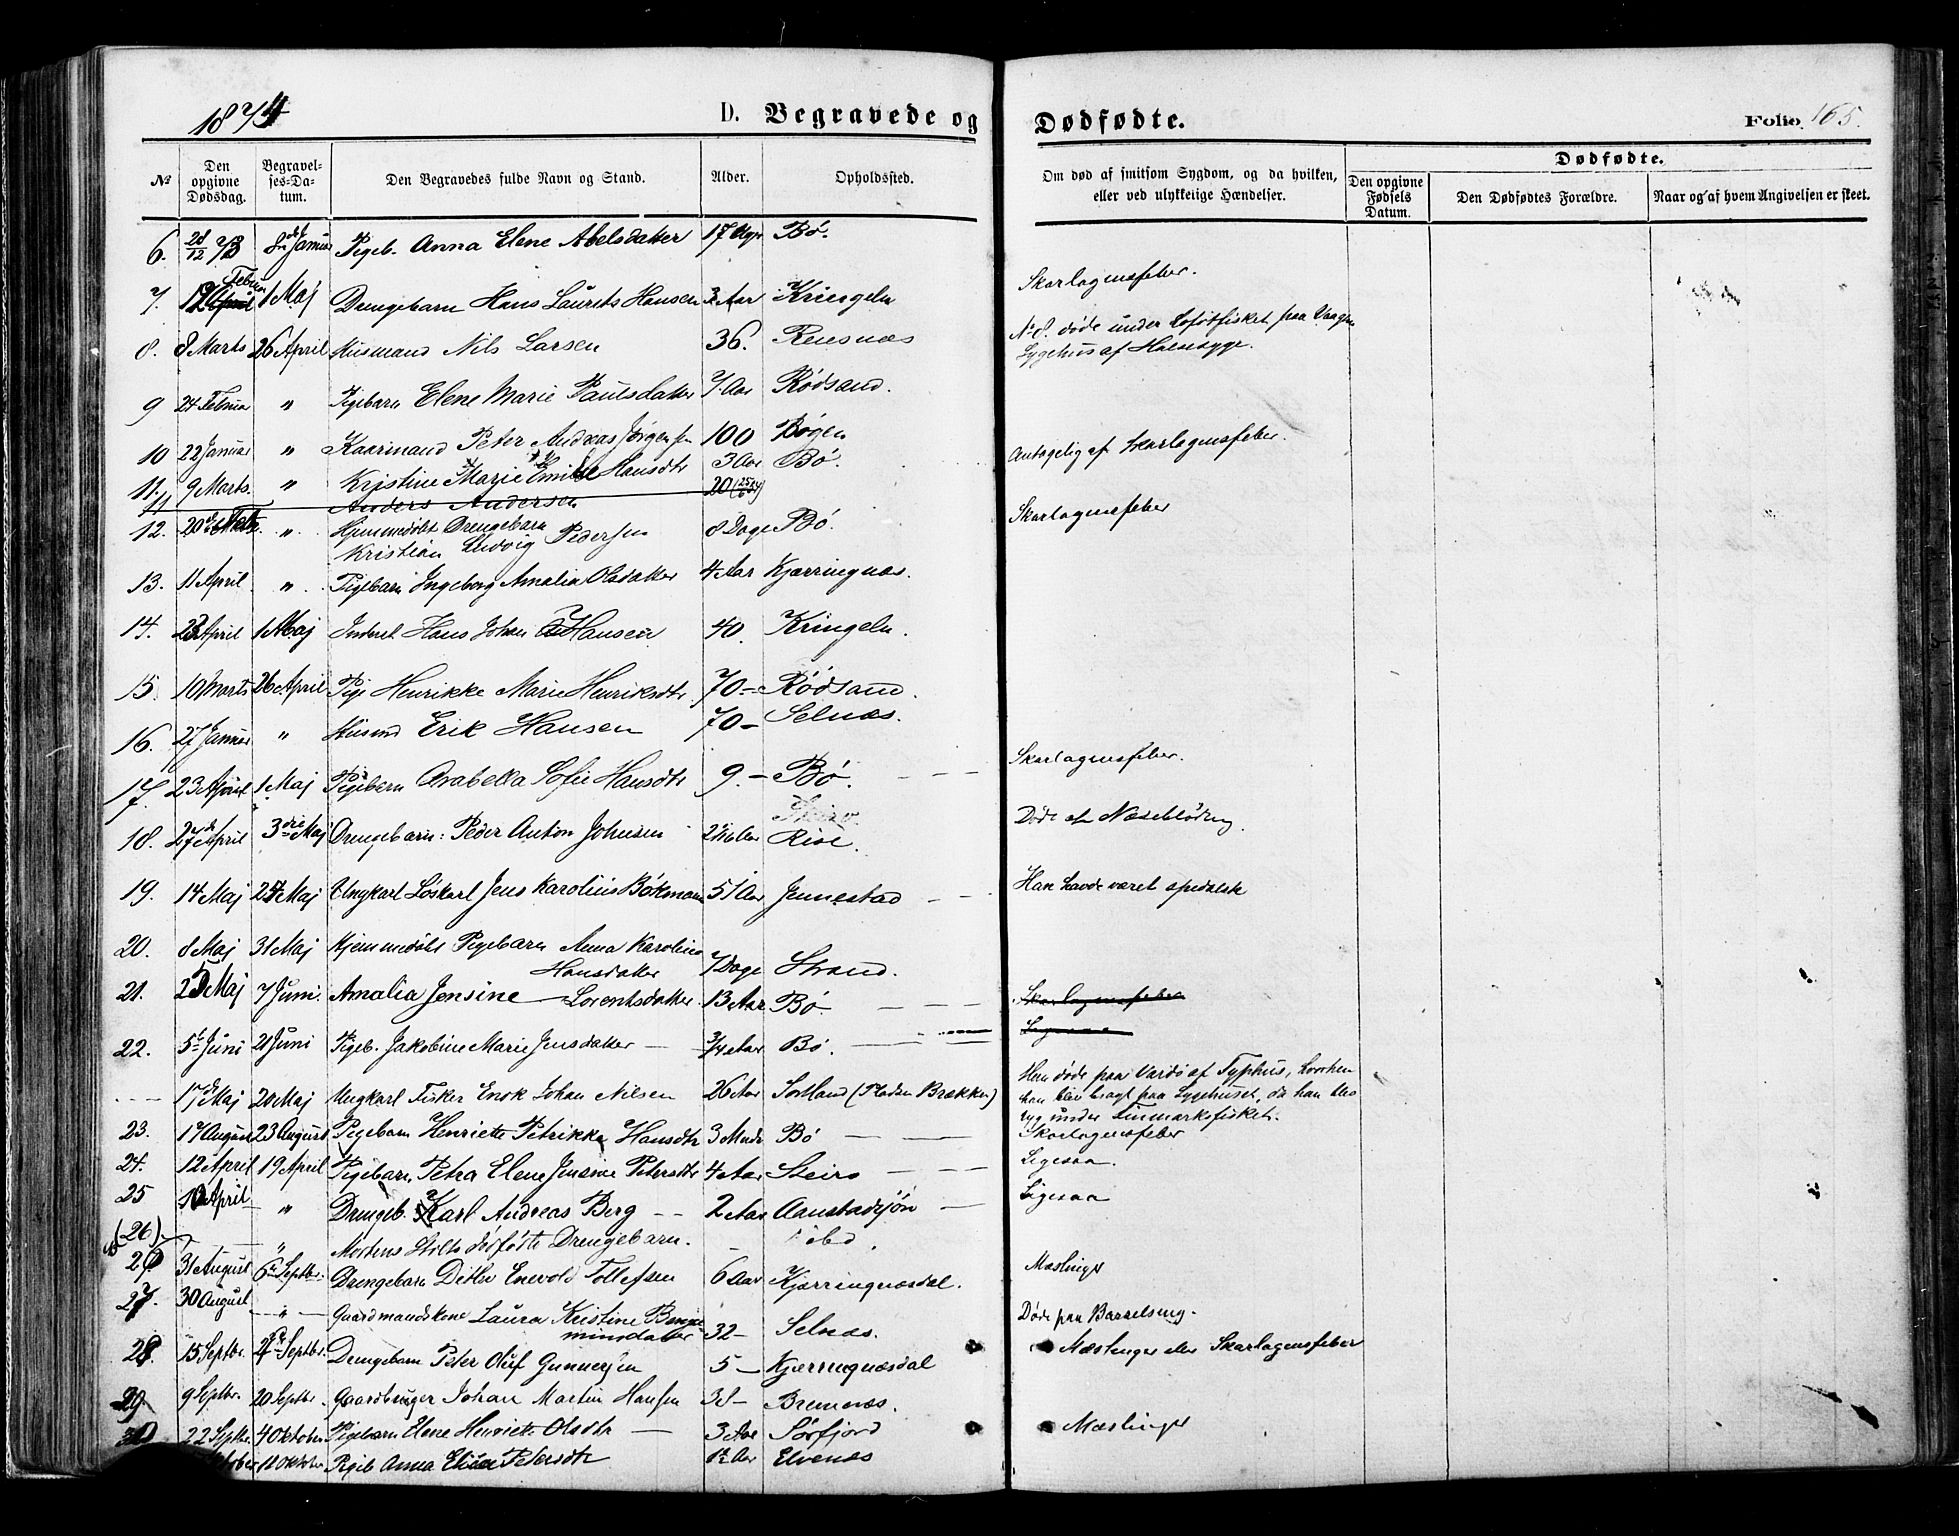 1874
D. Begravede og Dødfødte.
Folio. 165.
№
Den opgivne Dødsdag.
Begravelses-Datum.
Den Begravedes fulde Navn og Stand.
Alder.
Opholdssted.
Om død af smitsom Sygdom, og da hvilken, eller ved ulykkelige Hændelser.
Dødfødte.
Den opgivne Fødsels Datum.
Den Dødfødtes Forældre.
Naar og af hvem Angivelsen er skeet.
6. 28/12 73 8de Januar Pigeb. Anna Elene Abelsdatter 17 Bø.
7. 19 Februar 1 Maj Drengebarn Hans Laurits Hansen 3 Aar Kringeln Skarlagensfeber.
8. 8 Marts 26 April Husmand Nils Larsen 36. Rensnæs No 8. døde under Lofotfisket paa Vaagen
Sygehus af Halssyge.
9 24 Februar " Pigebarn Elene Marie Paulsdatter 7 Aar Rødsand.
10 22 Januar " Kaarmand Peter Andreas Jørgensen 100 Bogen
11. 9 Marts. " Kristine Marie Emilie Hansdtr 3 Aar Bø. Antagelig af Skarlagensfeber.
11 Anders Andersen 20
12. 20de " Hjemmedøbt Drengebarn
Kristian Ludvig Pedersen 8 Dage Bø. Skarlagensfeber
13. 11 April " Pigebarn Ingeborg Amalia Olsdatter 4 Aar Kjerringnæs.
14. 23 April 1 Maj Inderst Hans Johan Hansen 40. Kringeln.
15. 10 Marts 26 April Pige Henrikke Marie Henriksdtr. 70 - Rødsand.
16. 27 Januar " Husmd Erik Hansen 70 - Selnæs.
17. 23 April 1 Maj Pigebarn Arabella Sofie Hansdtr 9. - Bø. Skarlagensfeber.
18. 27de April 3die Maj Drengebarn: Peder Anton Johnsen Rise. Døde af Næseblødning.
19. 14 Maj 25 Maj Ungkarl Løskarl Jens Karolius Bøkman 51 Aar Jennestad Han havde været spedalsk
20. 8 Maj 31 Maj Hjemmedøbt Pigebarn Anna Karolina
Hansdatter 7 Dage Strand.
21. 25 Maj 7 Juni. Amalia Jensine Lorentsdatter 13 Aar Bø. Skarlagensfeber
22. 5te Juni 21 Juni Pigeb. Jakobine Marie Jensdatter 3/4 Aar Bø. Ligesaa
17de Maj 20 Maj Ungkarl Fisker Enok Johan Nilsen 26 Aar Sortland (Pladsen Brækken) Han døde paa Vardø af Typhus, hvorhen
han blev bragt paa Sygehuset, da han blev
syg under Finmarksfisket.
23. 17 August 23 August Pigebarn Henriette Petrikke Hansdtr 3 Mndr Bø Skarlagensfeber
24. 12 April 19 April Pigebarn Petra Elene Jensine Petersdtr 4 Aar Steiro Ligesaa.
25 10 April " Drengeb. Karl Andreas Berg 2 Aar Aanstadsjøn Ligesaa
(26) " Mortens Holts dødfødte Drengebarn.
26 31 August 6te Septbr. Drengebarn Ditlev Enevold Tollefsen 6 Aar Kjerringnæsdal. Mæslinger
27. 30 August " Gaardmandskone Laura Kristine Benja-
minsdatter 32 - Selnæs. Døde paa Barselseng.
28 15 Septbr. Septbr. Drengebarn Peter Oluf Gunnersen 5 - Kjerringnæsdal Mæslinger eller Skarlagensfeber
29. 9 Septbr. 20 Septbr. Gaardbruger Johan Martin Hansen 38 - Bremnæs.
30 22 Septbr. 4 Oktober Pigebarn Elene Henriette Olsdtr 3 Aar Sørfjord Mæslinger
Oktober Pigeb Anna Elisa Petersdtr Elvenæs